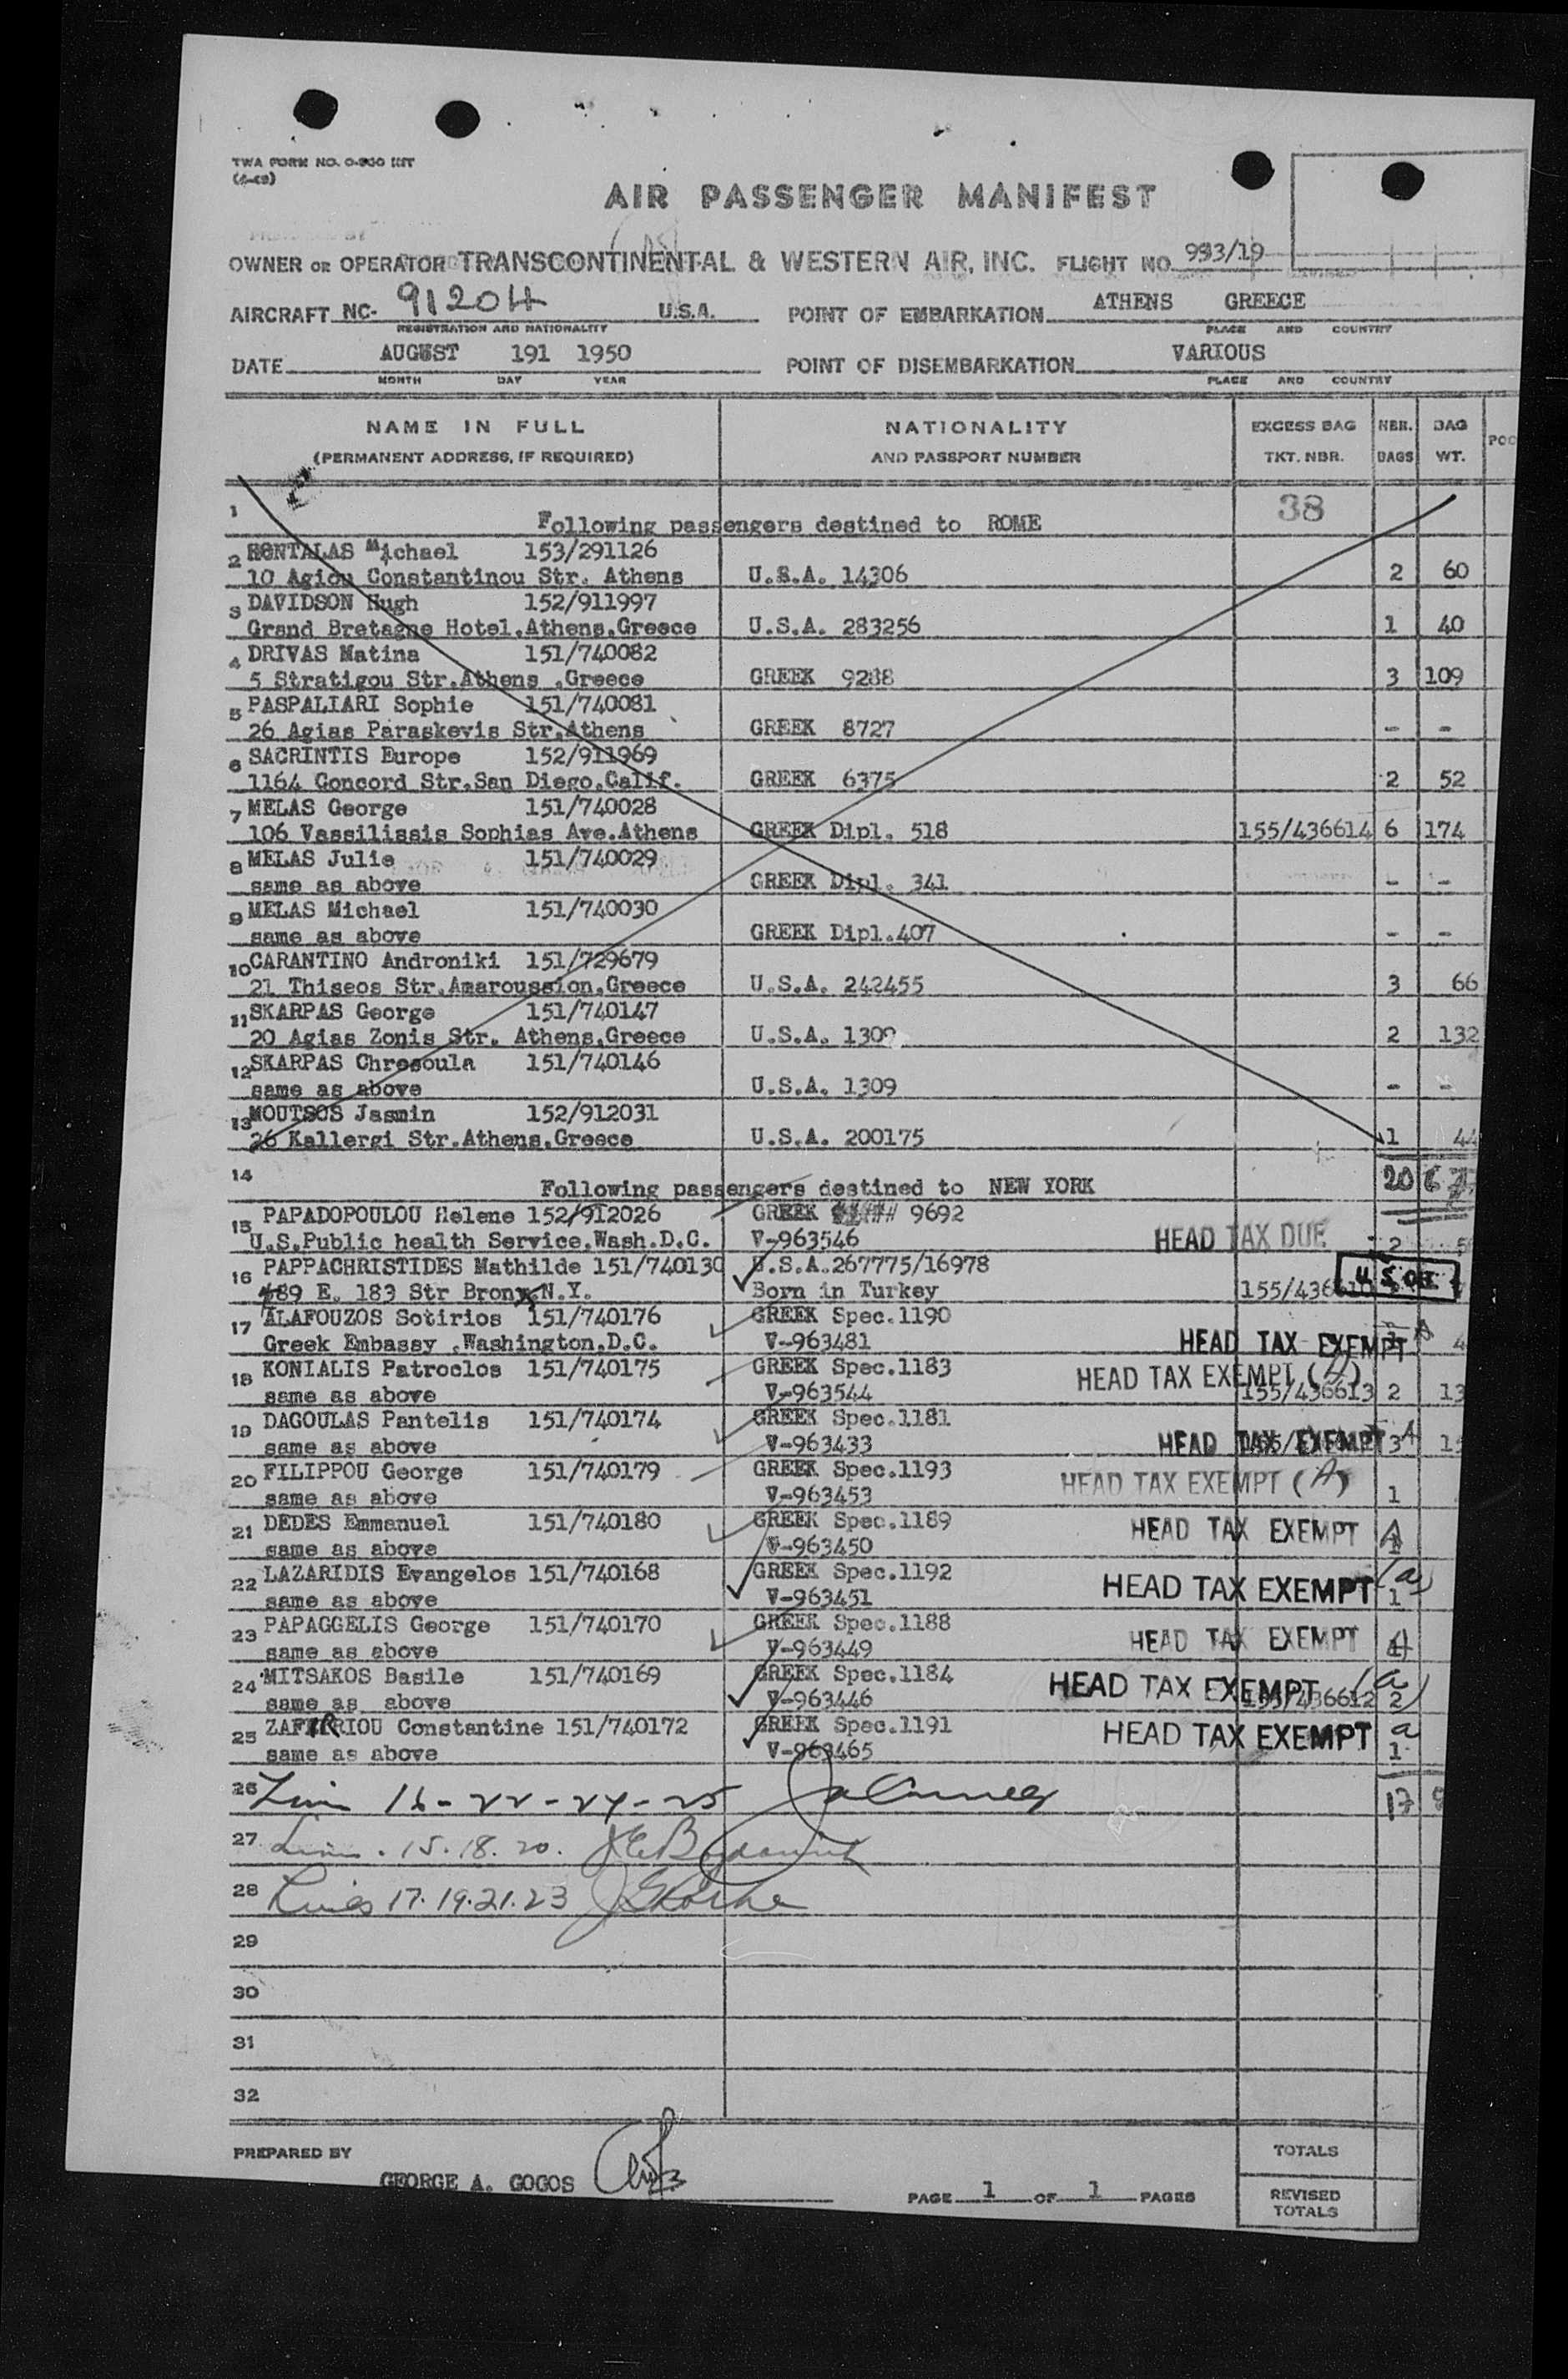 TWA FORM NO. O-800 INT
AIR PASSENGER MANIFEST
PREPARED BY
OWNER OR OPERATOR TRANSCONTINENTAL & WESTERN AIR, INC. FLIGHT NO. 993/19
AIRCRAFT NC- 91204 U.S.A. POINT OF EMBARKATION ATHENS GREECE
REGISTRATION AND NATIONALITY PLACE AND COUNTRY
DATE AUGUST 191 1950 POINT OF DISEMBARKATION VARIOUS
MONTH DAY YEAR PLACE AND COUNTRY
NAME IN FULL NATIONALITY EXCESS BAG NBR. BAG
(PERMANENT ADDRESS, IF REQUIRED) AND PASSPORT NUMBER TKT. NBR. BAGS WT.
38
1 Following passengers destined to ROME
2 RONTALAS Michael 153/291126
10 Agiou Constantinou Str. Athens U.S.A. 14306 2 60
3 DAVIDSON Hugh 152/911997
Grand Bretagne Hotel.Athens.Greece U.S.A. 283256 1 40
4 DRIVAS Matina 151/740082
5 Stratigou Str.Athens .Greece GREEK 9288 3 109
5 PASPALIARI Sophie 151/740081
26 Agias Paraskevis Str.Athens GREEK 8727 - -
6 SACRINTIS Europe 152/911969
1164 Concord Str.San Diego.Calif. GREEK 6375 2 52
7 MELAS George 151/740028
106 Vassilissis Sophias Ave.Athens GREEK Dipl. 518 155/436614 6 174
8 MELAS Julie 151/740029
same as above GREEK Dipl. 341 - -
9 MELAS Michael 151/740030
same as above GREEK Dipl.407 - -
10 CARANTINO Androniki 151/729679
21 Thiseos Str.Amaroussion.Greece U.S.A. 242455 3 66
11 SKARPAS George 151/740147
20 Agias Zonis Str. Athens.Greece U.S.A. 1309 2 132
12 SKARPAS Chresoula 151/740146
same as above U.S.A. 1309 - -
13 MOUTSOS Jasmin 152/912031
26 Kallergi Str.Athens.Greece U.S.A. 200175 1 44
14 20
Following passengers destined to NEW YORK
15 PAPADOPOULOU Helene 152/912026 GREEK 9692
U.S.Public health Service.Wash.D.C. V-963546 HEAD TAX DUE 2
16 PAPPACHRISTIDES Mathilde 151/740130 U.S.A.267775/16978
489 E. 183 Str Bronx N.Y. Born in Turkey U.S. CIT.
17 ALAFOUZOS Sotirios 151/740176 GREEK Spec.1190
Greek Embassy .Washington.D.C. V-963481 HEAD TAX EXEMPT A
18 KONIALIS Patroclos 151/740175 GREEK Spec.1183 HEAD TAX EXEMPT (A)
same as above V-963544 155/436613 2 13
19 DAGOULAS Pantelis 151/740174 GREEK Spec.1181
same as above V-963433 HEAD TAX EXEMPT A 3
20 FILIPPOU George 151/740179 GREEK Spec.1193 HEAD TAX EXEMPT (A)
same as above V-963453 1
21 DEDES Emmanuel 151/740180 GREEK Spec.1189 HEAD TAX EXEMPT A
same as above V-963450 1
22 LAZARIDIS Evangelos 151/740168 GREEK Spec.1192 HEAD TAX EXEMPT (a)
same as above V-963451 1
23 PAPAGGELIS George 151/740170 GREEK Spec.1188 HEAD TAX EXEMPT A
same as above V-963449
24 MITSAKOS Basile 151/740169 GREEK Spec.1184 HEAD TAX EXEMPT (a)
same as above V-963446 155/436612 2
25 ZAFIRIOU Constantine 151/740172 GREEK Spec.1191 HEAD TAX EXEMPT a
same as above V-963465 1
26 Lines 16-22-24-25 17
27 Lines. 15.18.20.
28 Lines 17.19.21.23
29
30
31
32
PREPARED BY TOTALS
GEORGE A. GOGOS PAGE 1 OF 1 PAGES REVISED
TOTALS